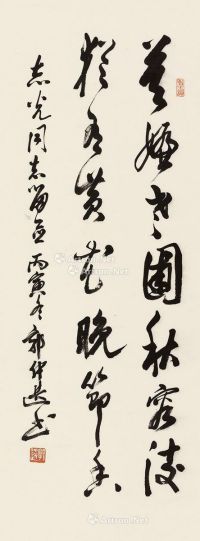 莫嫌老圃秋容淡
犹有黄花晚节香
志光同志留画 丙寅冬 郭仲选书